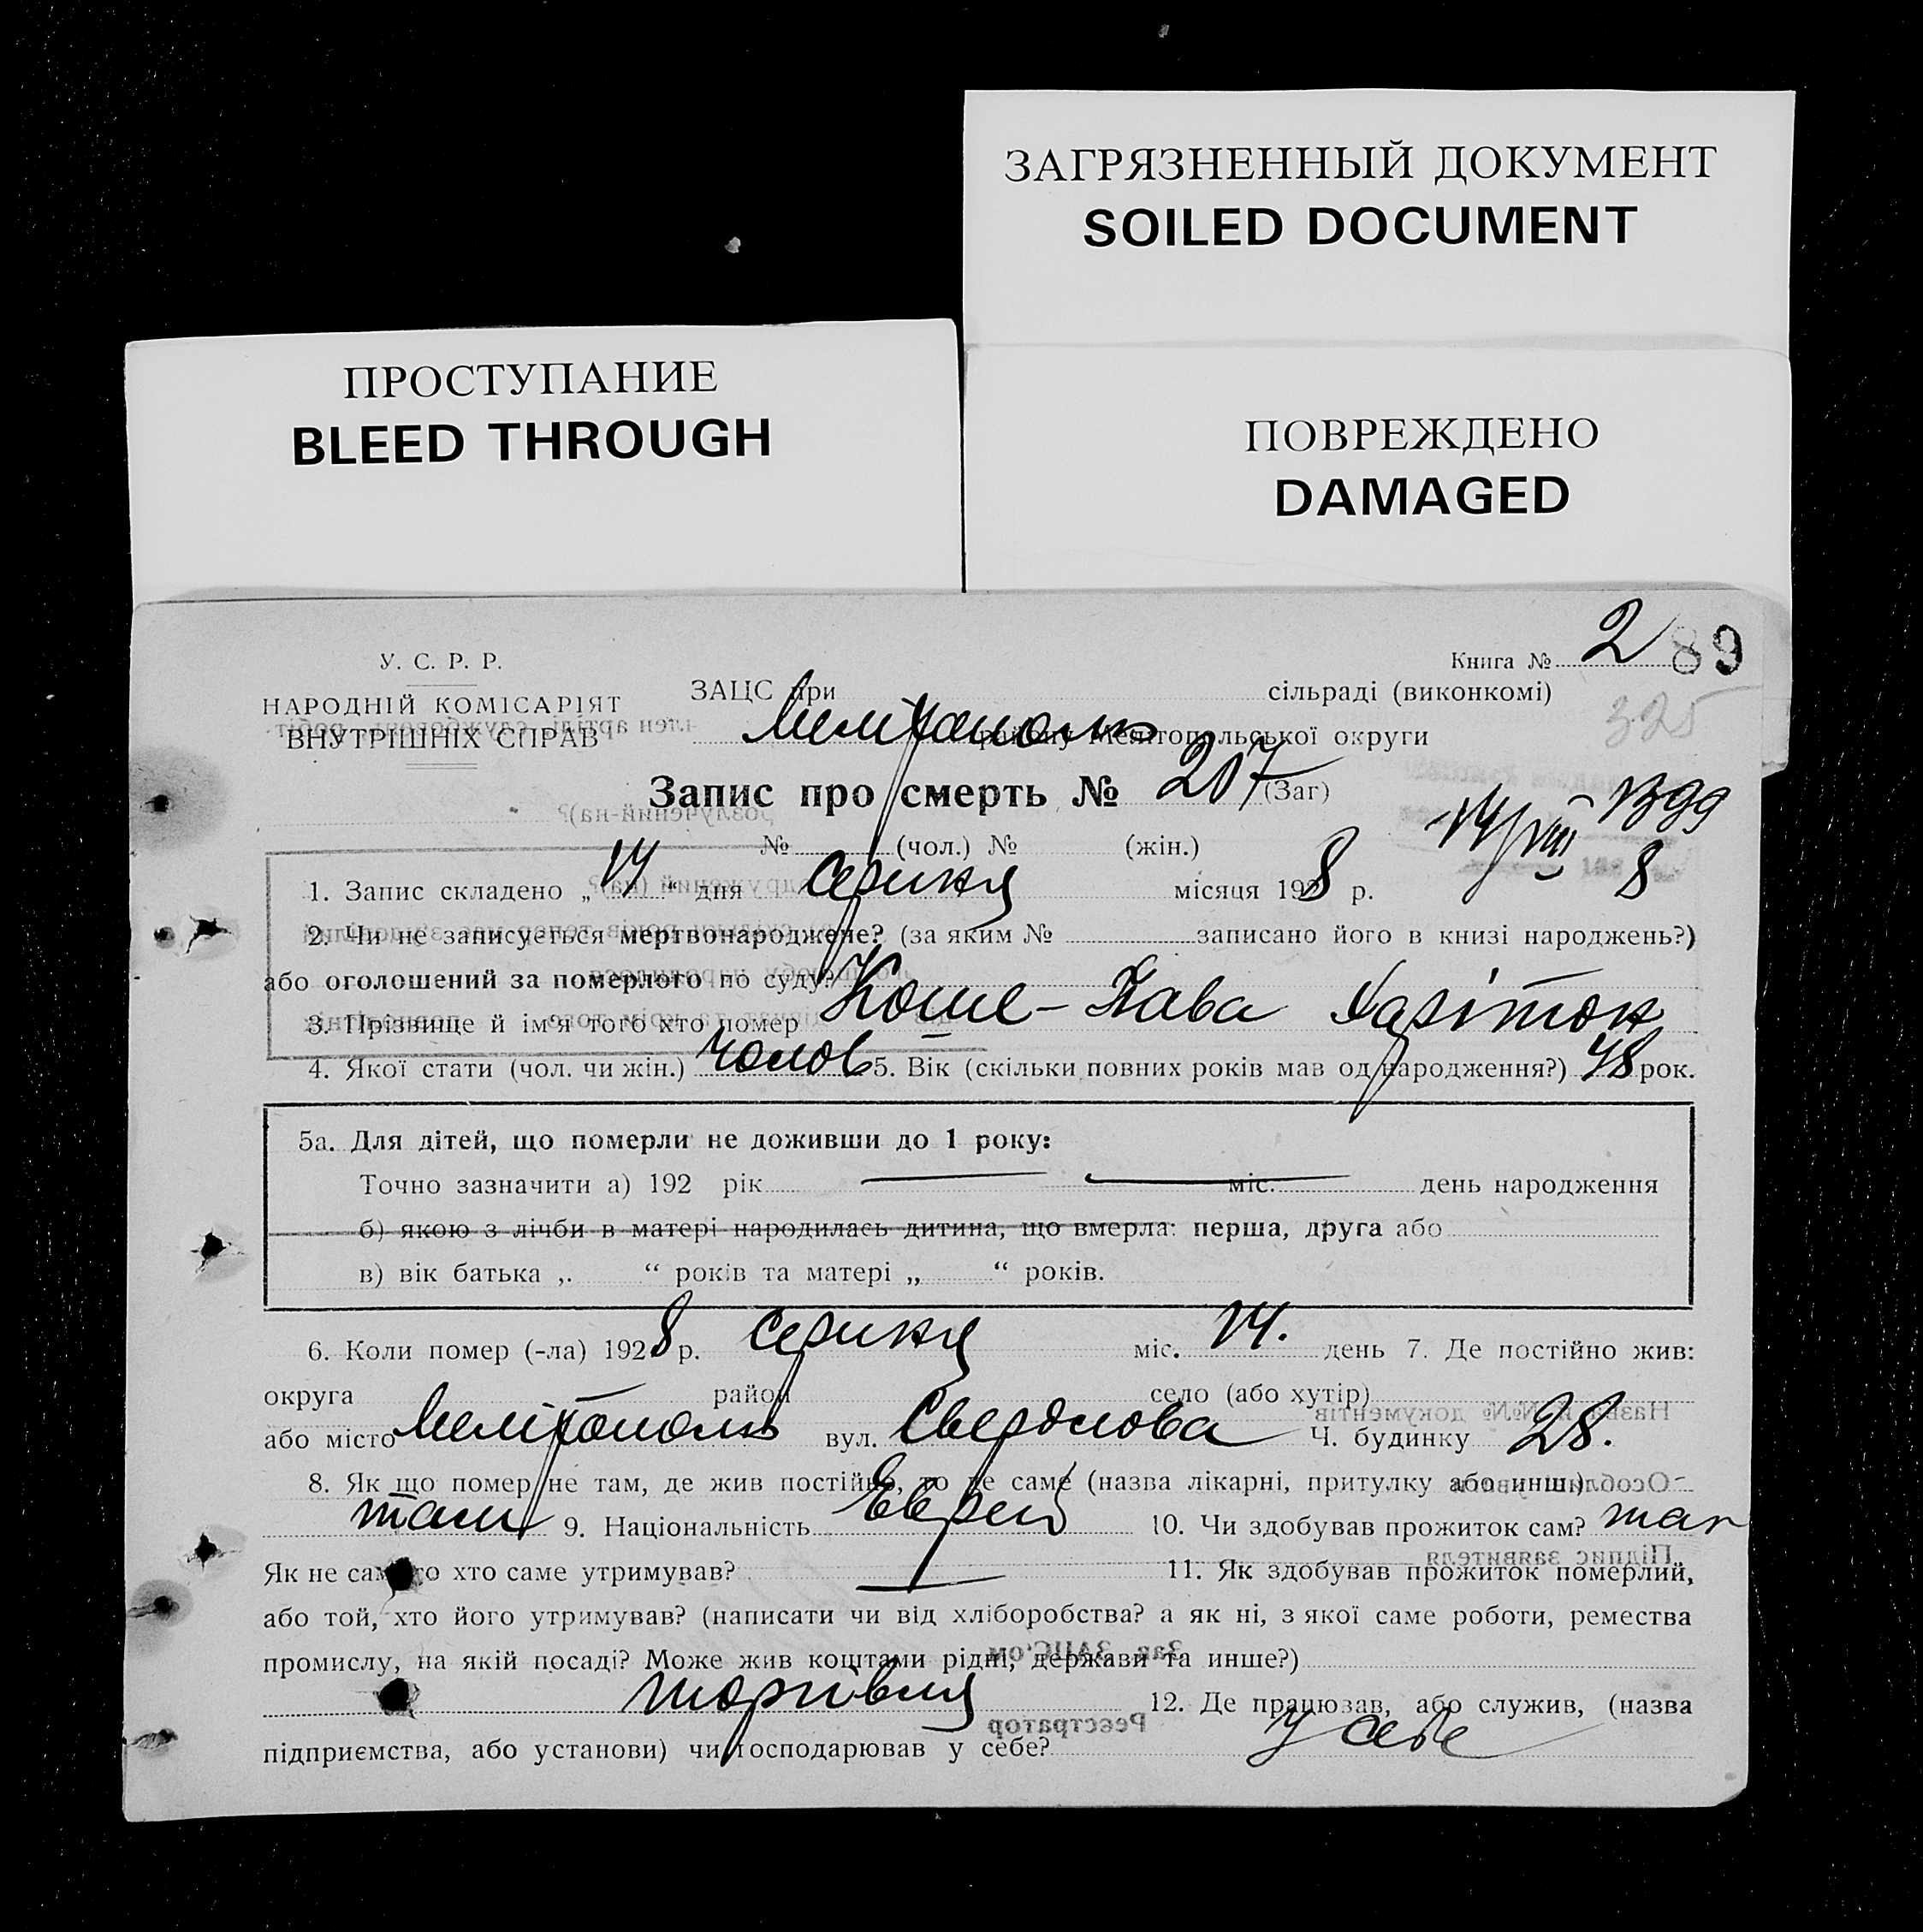 ЗАГРЯЗНЕННЫЙ ДОКУМЕНТ
SOILED DOCUMENT
ПРОСТУПАНИЕ
BLEED THROUGH
ПОВРЕЖДЕНО
DAMAGED
У. С. Р. Р.
НАРОДНІЙ КОМІСАРІЯТ
ВНУТРІШНІХ СПРАВ
Книга № 2 89
325
ЗАЦС при сільраді (виконкомі)
Мелітополь району Мелітопольської округи
Запис про смерть № 207 (Заг)
№ (чол.) № (жін.)
14/VIII
8
1. Запис складено „14“ дня Серпня місяця 1928 р.
2. Чи не записується мертвонароджене? (за яким № записано його в книзі народжень?)
або оголошений за померлого по суду?
3. Прізвище й ім'я того хто помер Коше-Хава
4. Якої стати (чол. чи жін.) Чолов 5. Вік (скільки повних років мав од народження?) 48 рок.
5а. Для дітей, що померли не доживши до 1 року:
Точно зазначити а) 192 рік міс. день народження
б) якою з лічби в матері народилась дитина, що вмерла: перша, друга або
в) вік батька „ “ років та матері „ “ років.
6. Коли помер (-ла) 1928 р. Серпня міс. 14. день 7. Де постійно жив:
округа район село (або хутір)
або місто Мелітополь вул. Свердлова Ч. будинку 28.
8. Як що помер не там, де жив постійно, то де саме (назва лікарні, притулку або инш.)
там 9. Національність Еврей 10. Чи здобував прожиток сам? так
Як не сам то хто саме утримував? 11. Як здобував прожиток померлий,
або той, хто його утримував? (написати чи від хліборобства? а як ні, з якої саме роботи, ремества
промислу, на якій посаді? Може жив коштами рідні, держави та инше?)
торгівля 12. Де працював, або служив, (назва
підприємства, або установи) чи господарював у себе? У себе